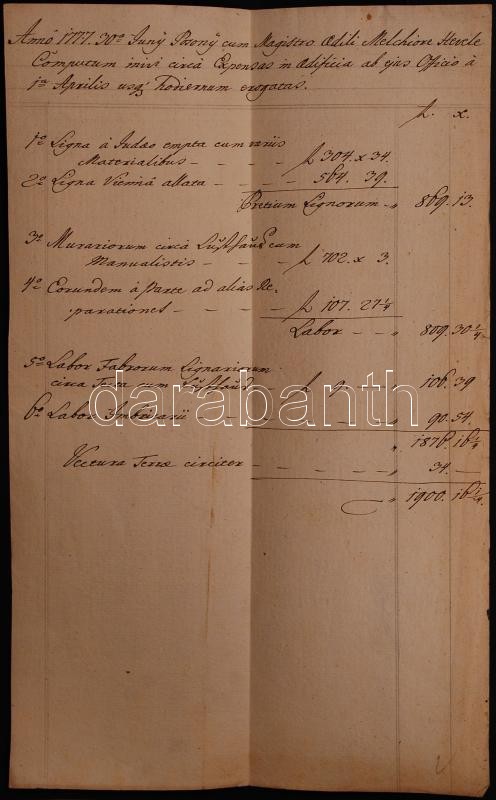 Anno 1777. 30a Juny Posony cum Magistro Ædili Melchiore Hevele
Computum inivi circà Expensas in Ædificia ab ejus Officio à
1a Aprilis usq hodiernum erogatas.
fl. x.
1o Ligna à Judæo empta cum variis
Materialibus - - - fl 304. x 34.
2o Ligna Viennâ allata - - - - 564. 39.
Pretium Lignorum - " 869. 13.
3o Murariorum circà cum
Manualistis - - - - fl 702. x 3.
4o Eorundem à Parte ad alias Re-
parationes - - - - fl 107. 27 1/4
Labor - - " 809. 30 1/4
5o Labor Fabrorum Lignariorum
circa cum - fl 9. - " 106. 39
6o Labor - - - - " 90. 54.
" 1876. 16 1/4
Vectura Terræ circiter - - - - - " 34. —
" 1900. 16 1/4
darabanth